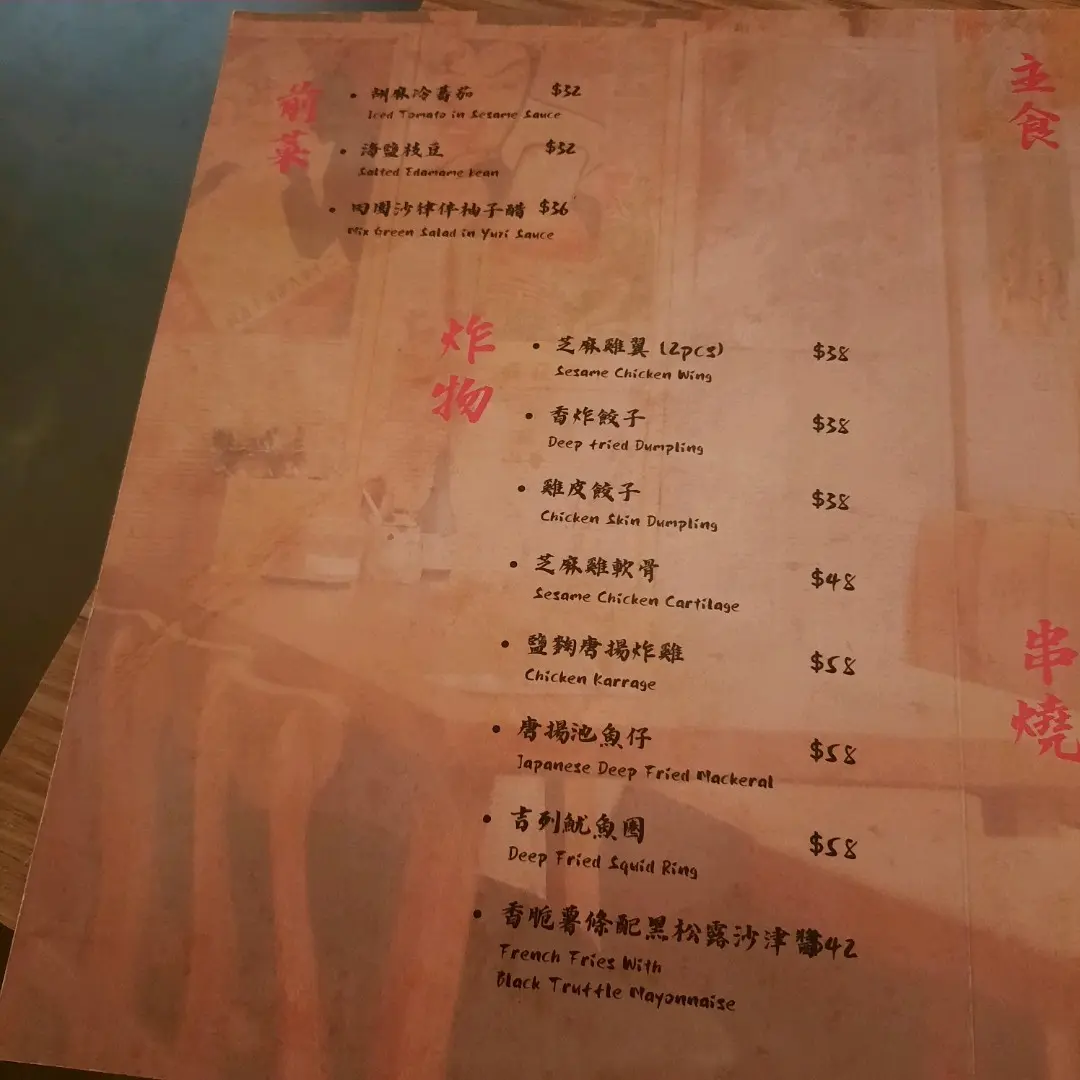 前菜
• 胡麻冷蕃茄 $32
Iced Tomato in Sesame Sauce
• 海鹽枝豆 $32
Salted Edamame bean
• 田園沙律伴柚子醋 $36
Mix Green Salad in Yuzi Sauce
炸物
• 芝麻雞翼 (2pcs) $38
Sesame Chicken Wing
• 香炸餃子 $38
Deep fried Dumpling
• 雞皮餃子 $38
Chicken Skin Dumpling
• 芝麻雞軟骨 $48
Sesame Chicken Cartilage
• 鹽麴唐揚炸雞 $58
Chicken Karrage
• 唐揚池魚仔 $58
Japanese Deep Fried Mackeral
• 吉列魷魚圈 $58
Deep Fried Squid Ring
• 香脆薯條配黑松露沙津醬 $42
French Fries With
Black Truffle Mayonnaise
主食
串燒